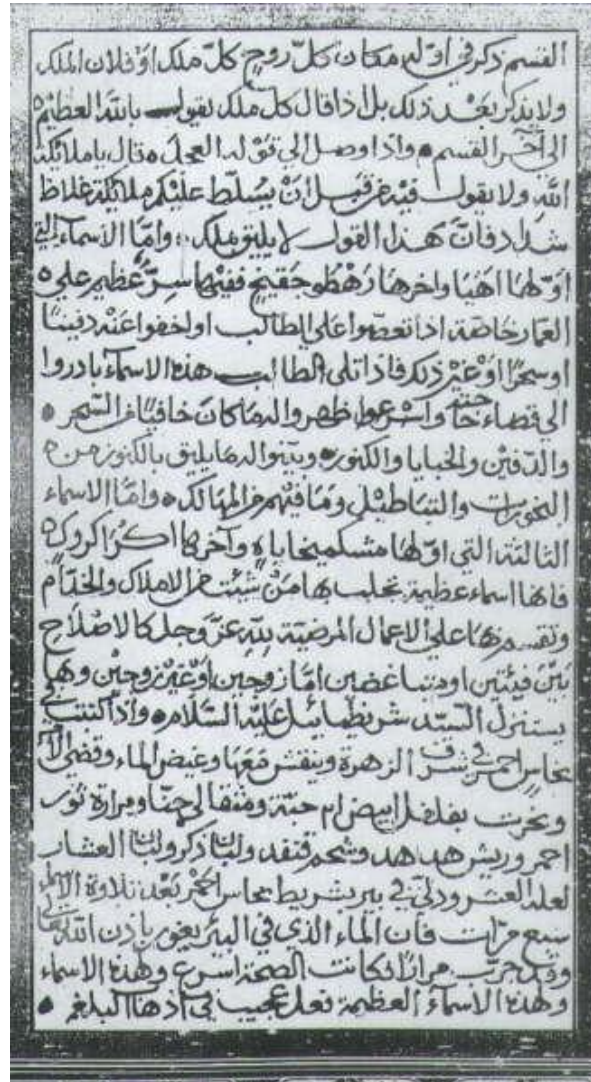 القسم ذكر في اوّله مكان كلّ روح كلّ ملك او فلان الملك
ولا يذكر بعْد ذلك بل اذا قال كل ملك يقول بالله العظيم
الي آخر القسم واذا وصل الي قوْله العجل قال يا ملائكة
الله ولا يقول فيه من قبل انْ يسلّط عليْكم ملائكة غلاظ
شداد فانّ هذا القول لا يليق بملك وامّا الاسماء التي
اوّلها اهيا واخرها زهطو جقيج ففيها سرّ عظيم علي
العمار خاصّة اذا تعصّوا علي الطالب او اخفوا عنْه دفينا
او سحرًا اوْ غيْر ذلك فاذا تلى الطالب هذه الاسماء بادروا
الي قضاء حاجته واسْرعوا وظهر والد ما كان خافيًا من السّحر
والدّفيْن والخبايا والكنوز ويبيّنوا له ما يليق بالكنوز من
البخورات والتباطيْل وما فيْهم من المهالك وامّا الاسماء
الثالثة التي اوّلها مشكميخاياه وآخرها اكرًا كروك
فانها اسماء عظيمة تجلب بها منْ شئت من الاملاك والخدّام
وتقسم بها علي الاعمال المرضيّة للّه عزّ وجل كالاصْلاح
بيْن فيئتين او متباغضين امّا زوجين اوْ غيْر زوجيْن وهي
يستنزل السيّد شريطيائيل عليْه السّلام واذا كتبت في
نحاس احمر في شرف الزهرة وينقش معها وغيض الماء وقضي الامر
وبخّرت بفلفل ابيض ام حبّة ومثقالي حنّا ومرارة ثور
احمر وريش هدهد وشحم قنفد ولبان ذكر ولبان العشار
لعله العشر ودليّ في بير بشريط نحاس احمْر بعْد تلاوة الاسماء
سبع مرّات فان الماء الذي في البئر يغور باذن الله تعالي
وقد جرّب مرارًا فكانت الصحّة اسرع ولهذه الاسماء
ولهذه الاسماء العظيمة فعل عجيب في اذهاب البلغم